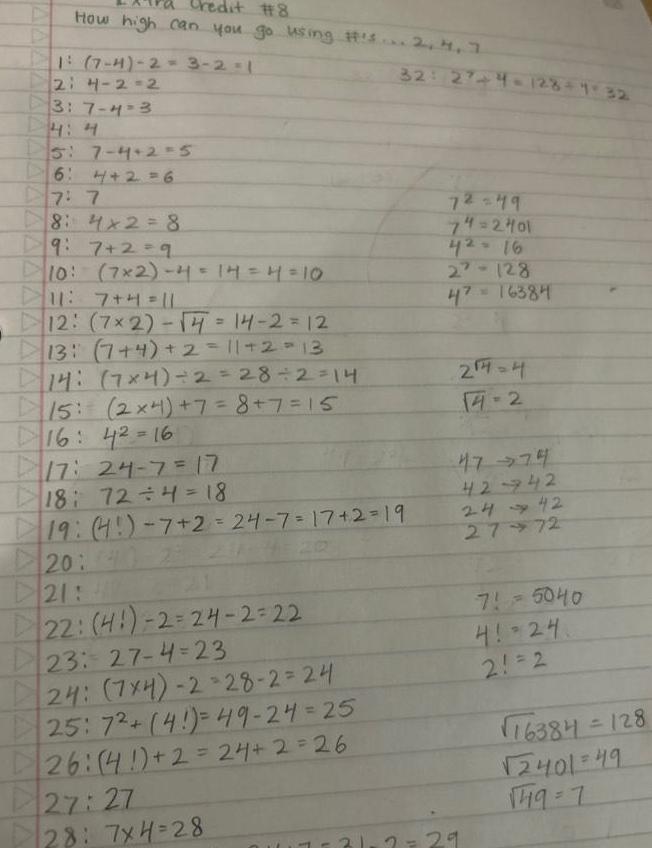 Extra Credit #8
How high can you go using #'s... 2, 4, 7
1: (7-4)-2 = 3-2 = 1
32: 2⁷ ÷ 4 = 128 ÷ 4 = 32
2: 4-2 = 2
3: 7-4 = 3
4: 4
5: 7-4+2 = 5
6: 4+2 = 6
7: 7
7² = 49
8: 4×2 = 8
7⁴ = 2401
9: 7+2 = 9
4² = 16
10: (7×2)-4 = 14 = 4 = 10
2⁷ = 128
11: 7+4 = 11
4⁷ = 16384
12: (7×2) - √4 = 14-2 = 12
13: (7+4)+2 = 11+2 = 13
14: (7×4)÷2 = 28÷2 = 14
2^√4 = 4
15: (2×4)+7 = 8+7 = 15
√4 = 2
16: 4² = 16
17: 24-7 = 17
47 → 74
18: 72÷4 = 18
42 → 42
19: (4!)-7+2 = 24-7 = 17+2 = 19
24 → 42
27 → 72
20:
21:
7! = 5040
22: (4!)-2 = 24-2 = 22
4! = 24
23: 27-4 = 23
2! = 2
24: (7×4)-2 = 28-2 = 24
25: 7²+(4!) = 49-24 = 25
√16384 = 128
26: (4!)+2 = 24+2 = 26
√2401 = 49
27: 27
√49 = 7
28: 7×4 = 28
= 31-2 = 29